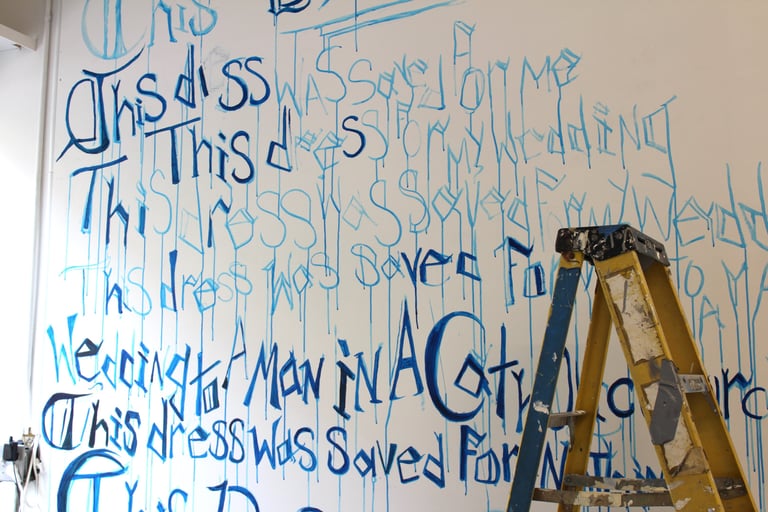 This
This diss was saved for me
This dress for my wedding
This dress was saved for my Wedd
This dress was saved for my
Wedding to A Man iN A Catholic Church
This dress was saved for Nothing
This D